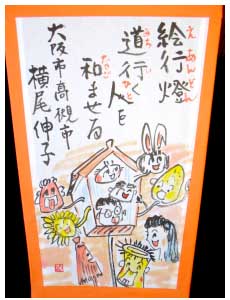 絵行燈
え あんどん
道行く
みち
人を
ひと
和ませる
なご
大阪市高槻市
横尾伸子